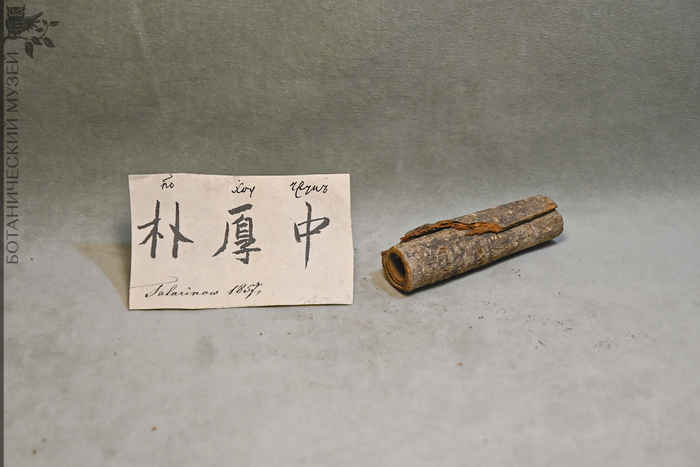 БОТАНИЧЕСКИЙ МУЗЕЙ
по хоу чжунъ
朴 厚 中
Tatarinow 1857,